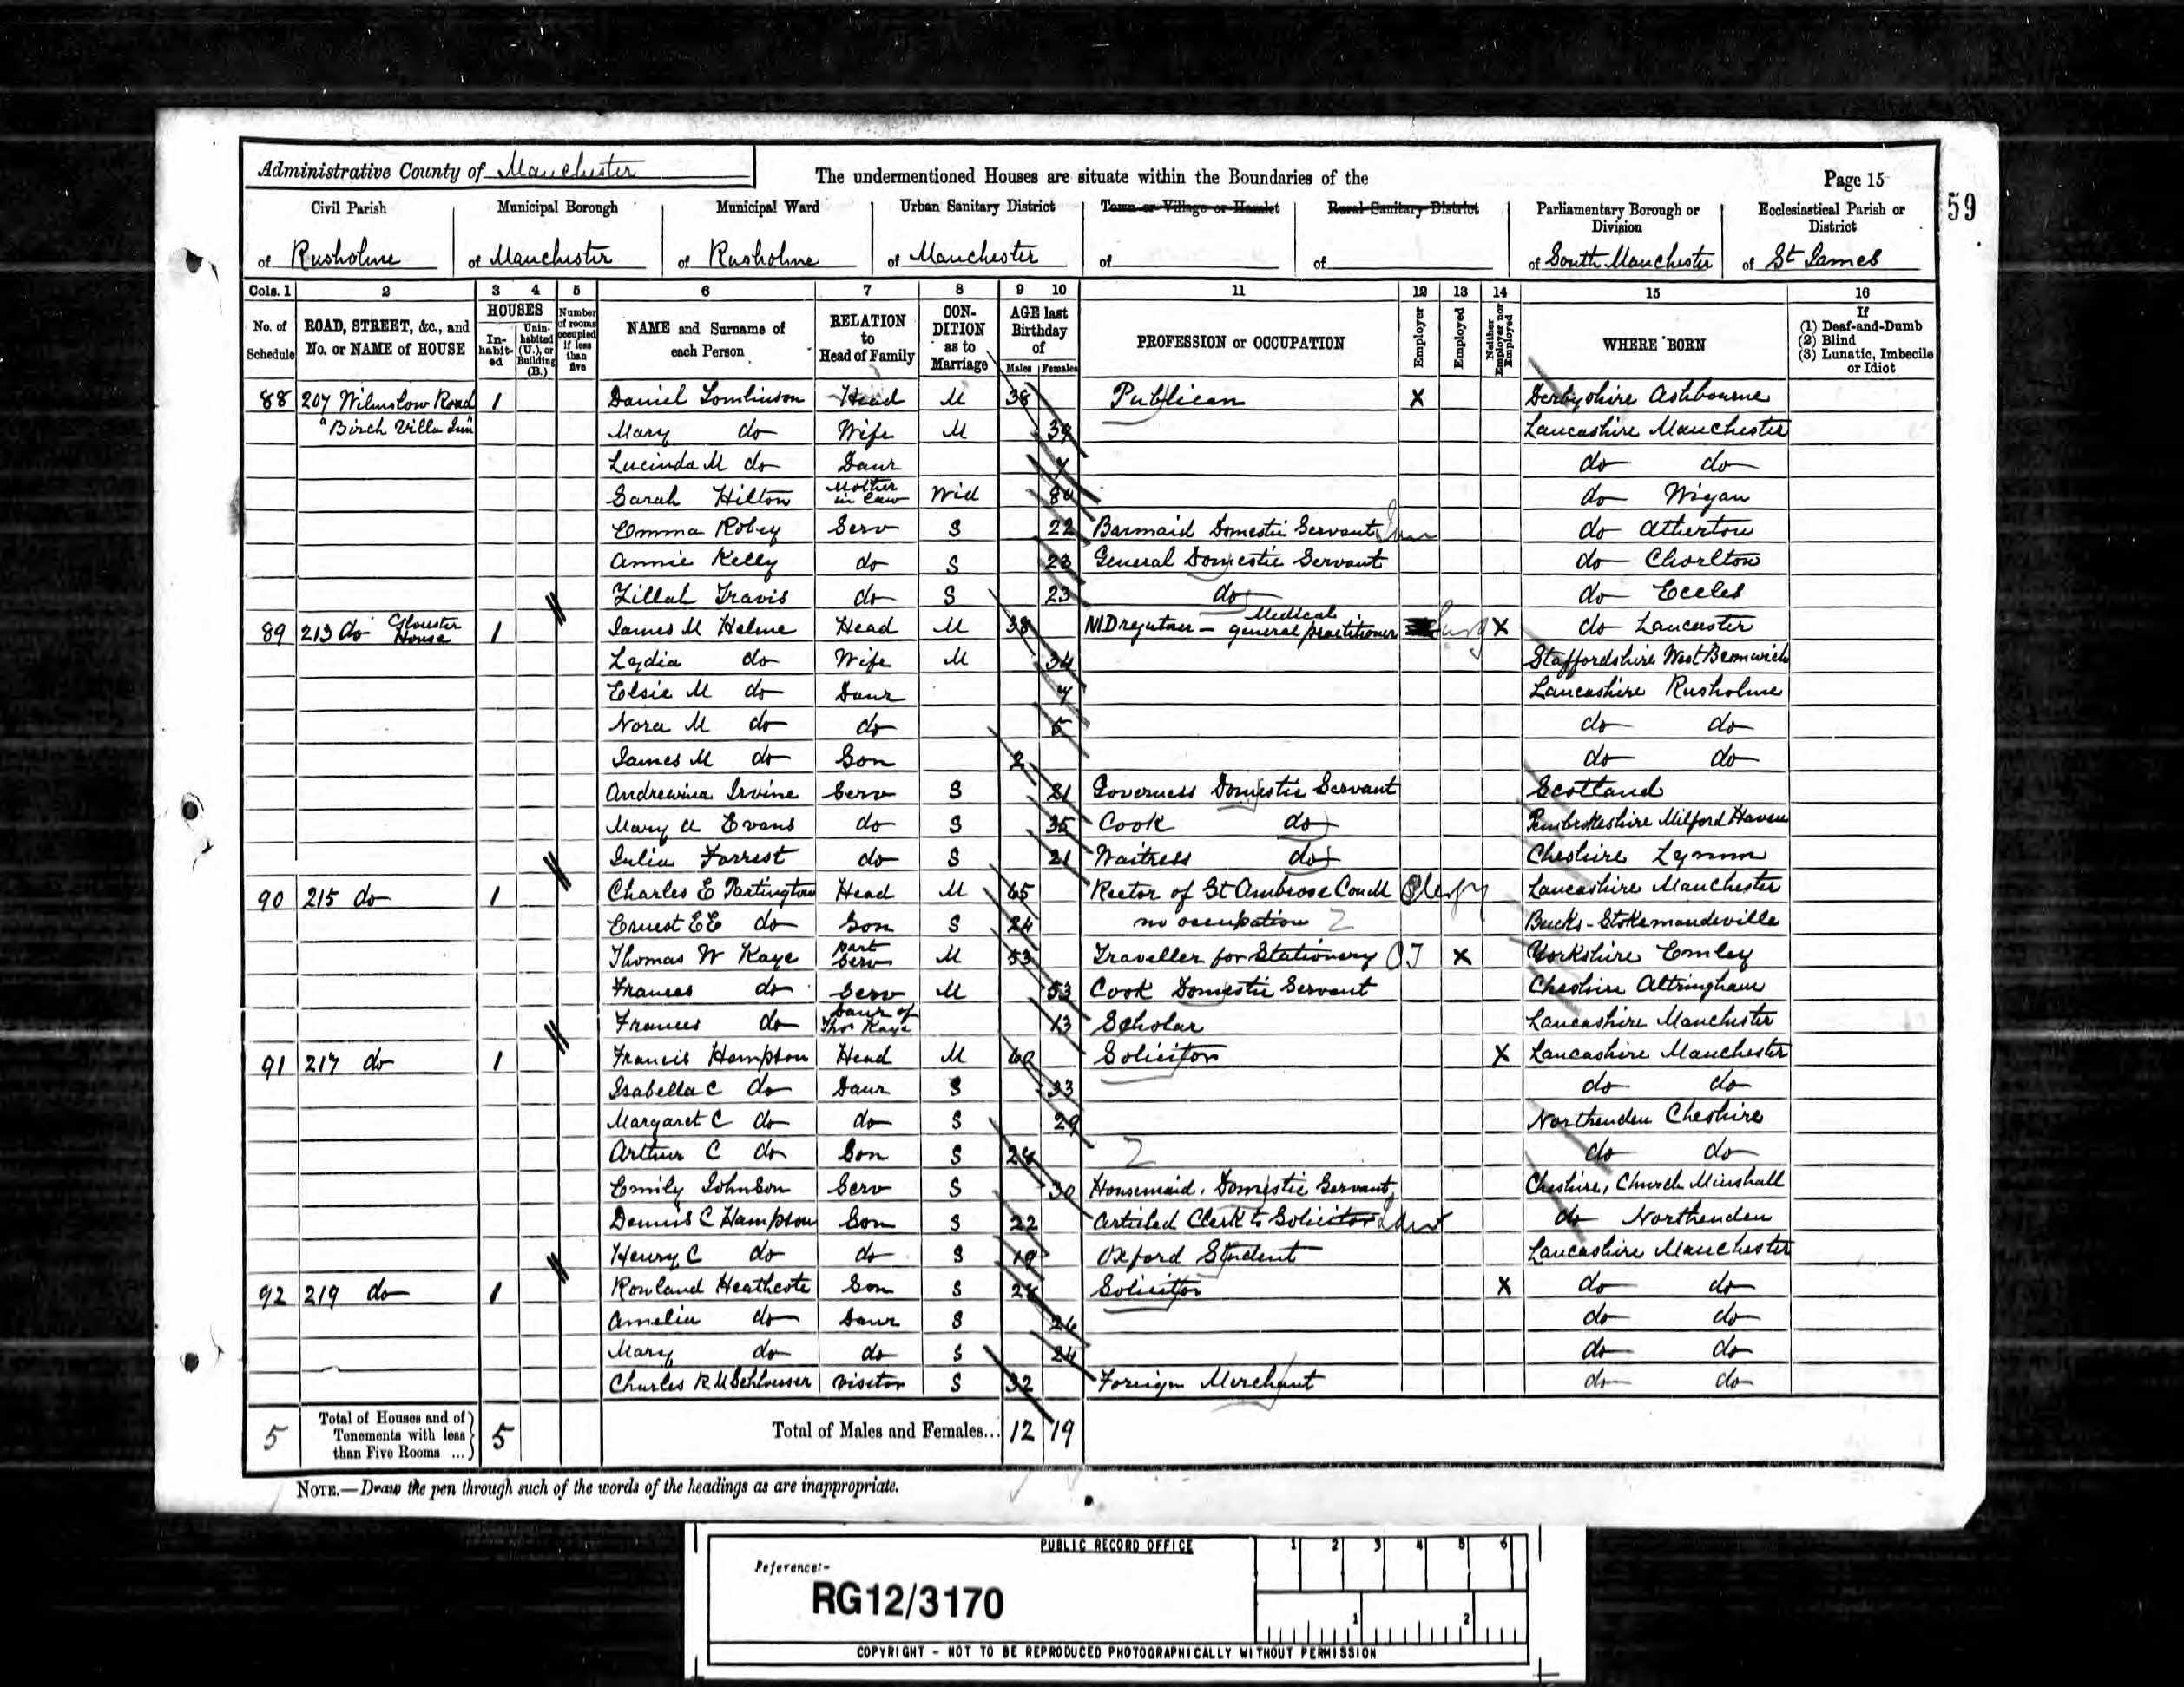 Administrative County of Manchester
The undermentioned Houses are situate within the Boundaries of the
Page 15
59
Civil Parish Municipal Borough Municipal Ward Urban Sanitary District Town or Village or Hamlet Rural Sanitary District Parliamentary Borough or Division Ecclesiastical Parish or District
of Rusholme of Manchester of Rusholme of Manchester of of of South Manchester of St James
Cols. 1 2 3 4 5 6 7 8 9 10 11 12 13 14 15 16
No. of Schedule ROAD, STREET, &c., and No. or NAME of HOUSE HOUSES Inhabited Uninhabited (U.), or Building (B.) Number of rooms occupied if less than five NAME and Surname of each Person RELATION to Head of Family CONDITION as to Marriage AGE last Birthday of Males Females PROFESSION or OCCUPATION Employer Employed Neither Employer nor Employed WHERE BORN If (1) Deaf-and-Dumb (2) Blind (3) Lunatic, Imbecile or Idiot
88 207 Wilmslow Road 1 Daniel Tomlinson Head M 38 Publican X Derbyshire Ashbourne
"Birch Villa Inn" Mary do Wife M 39 Lancashire Manchester
Lucinda M do Daur do do
Sarah Hilton Mother in Law Wid 80 do Wigan
Emma Robey Serv S 22 Barmaid Domestic Servant Inn do Atherton
Annie Kelly do S 23 General Domestic Servant do Chorlton
Zillah Travis do S 23 do do Eccles
89 213 do Glouster House 1 James M Helme Head M 38 MD - Medical general practitioner X do Lancaster
Lydia do Wife M 34 Staffordshire West Bromwich
Elsie M do Daur 7 Lancashire Rusholme
Nora M do do 5 do do
James M do Son 2 do do
Andrewina Irvine Serv S 21 Governess Domestic Servant Scotland
Mary A Evans do S 35 Cook do Pembrokeshire Milford Haven
Julia Forrest do S 21 Waitress do Cheshire Lymm
90 215 do 1 Charles E Partington Head M 65 Rector of St Ambrose Clergy Lancashire Manchester
Ernest E E do Son S 24 no occupation Bucks - Stokemandeville
Thomas W Kaye part Serv M 53 Traveller for Stationery CT X Yorkshire Emley
Frances do Serv M 53 Cook Domestic Servant Cheshire Altringham
Frances do Daur of Thos Kaye 13 Scholar Lancashire Manchester
91 217 do 1 Francis Hampson Head M 60 Solicitor X Lancashire Manchester
Isabella C do Daur S 33 do do
Margaret C do do S 29 Northenden Cheshire
Arthur C do Son S do do
Emily Johnson Serv S 30 Housemaid, Domestic Servant Cheshire, Church Minshall
Dennis C Hampson Son S 22 Articled Clerk to Solicitor Law do Northenden
Henry C do do S 19 Oxford Student Lancashire Manchester
92 219 do 1 Rowland Heathcote Son S Solicitor X do do
Amelia do Daur S 26 do do
Mary do do S 24 do do
Charles R M Schlosser visitor S 32 Foreign Merchant do do
5 Total of Houses and of Tenements with less than Five Rooms ... 5 Total of Males and Females... 12 19
NOTE.—Draw the pen through such of the words of the headings as are inappropriate.
PUBLIC RECORD OFFICE
1 2 3 4 5 6
Reference:-
RG12/3170
1 2
COPYRIGHT - NOT TO BE REPRODUCED PHOTOGRAPHICALLY WITHOUT PERMISSION